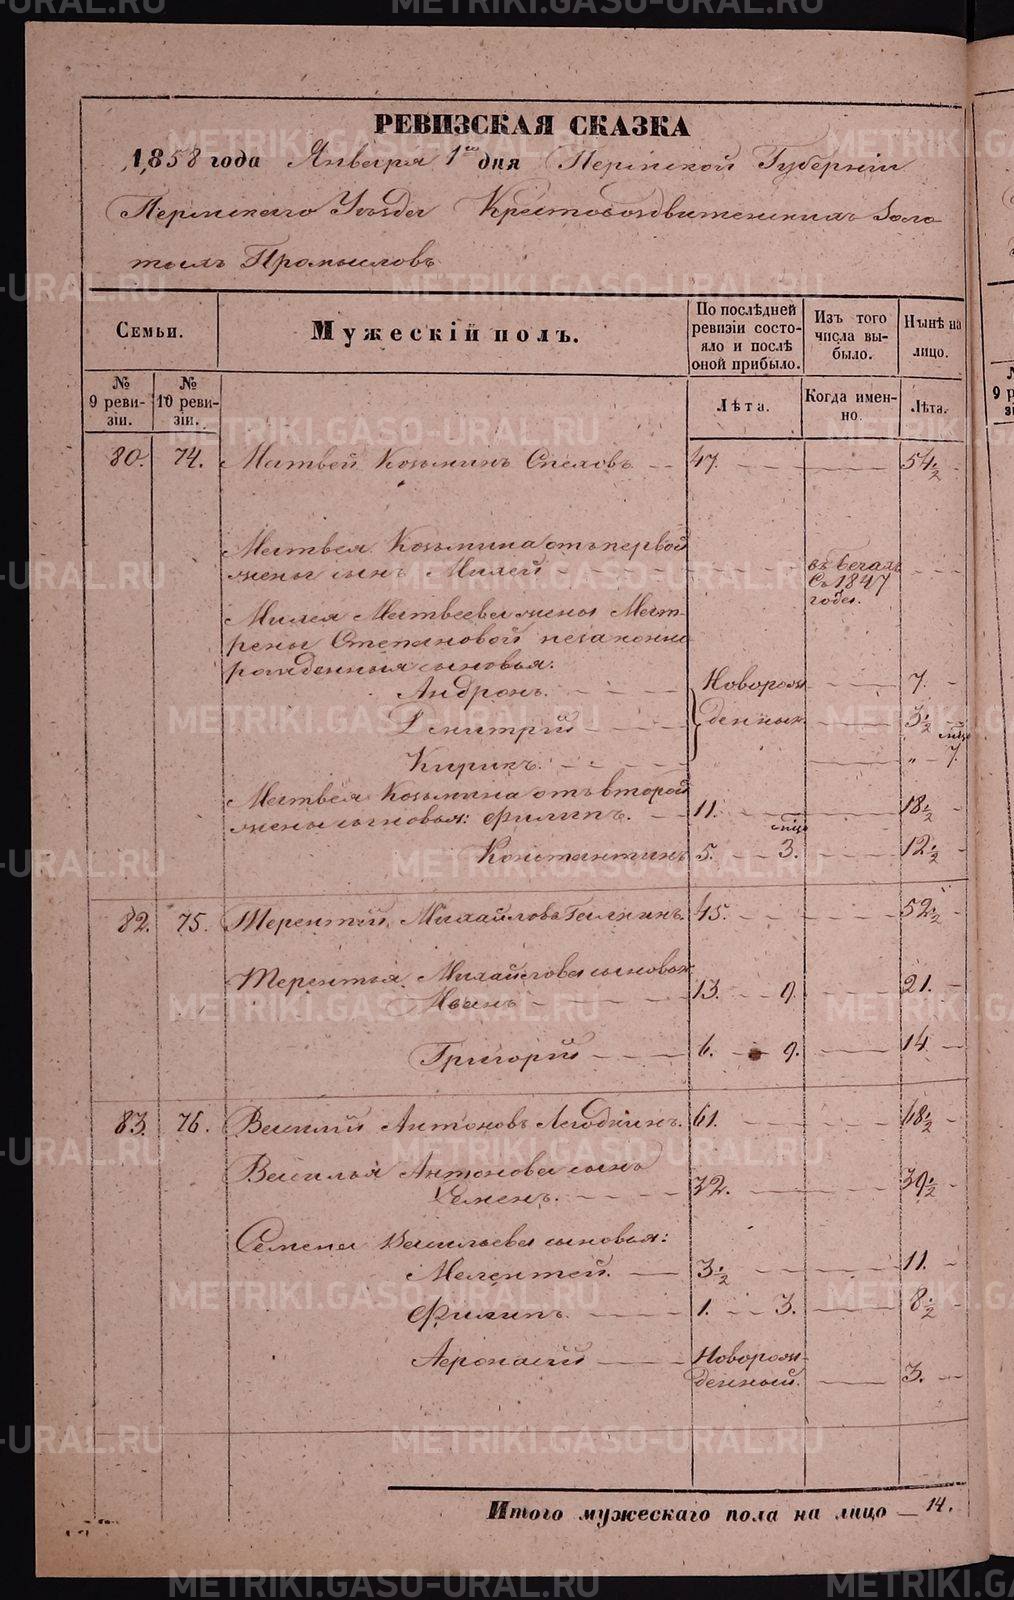 РЕВИЗСКАЯ СКАЗКА
1858 года Января 1го дня Пермской Губерніи
Пермскаго Уѣзда Крестовоздвиженскихъ Золо
тыхъ Промысловъ
Семьи.
Мужескій полъ.
По послѣдней ревизіи состояло и послѣ оной прибыло.
Изъ того числа выбыло.
Нынѣ на лицо.
№ 9 ревизіи.
№ 10 ревизіи.
Лѣта.
Когда именно.
Лѣта.
80. 74. Матвей Козьминъ 47. 54½
Матвея Козьмина отъ первой
жены сынъ Милей въ бегахъ
Съ 1847
года.
Милея Матвеева жены Мат-
рены Степановой незаконно
рожденныя сыновья:
Андронъ. Новорож 7.
Дмитрій денные 3½
Кирикъ. „ мѣс 7.
Матвея Козьмина отъ второй
жены сыновья: Филипъ. 11. 18½
Константинъ 5. мѣс 3. 12½
82. 75. Терентій Михайловъ Галкинъ. 45. 52½
Терентья Михайлова сыновья
Иванъ 13. 9. 21.
Григорій 6. 9. 14
83. 76. Василій Антоновъ Ягодкинъ. 61. 68½
Василья Антонова сынъ
Семенъ. 32. 39½
Семена Васильева сыновья:
Мелентей. 3½ 11.
Филипъ. 1. 3. 8½
Афонасій Новорож-
денный. 3.
Итого мужескаго пола на лицо 14.
METRIKI.GASO-URAL.RU